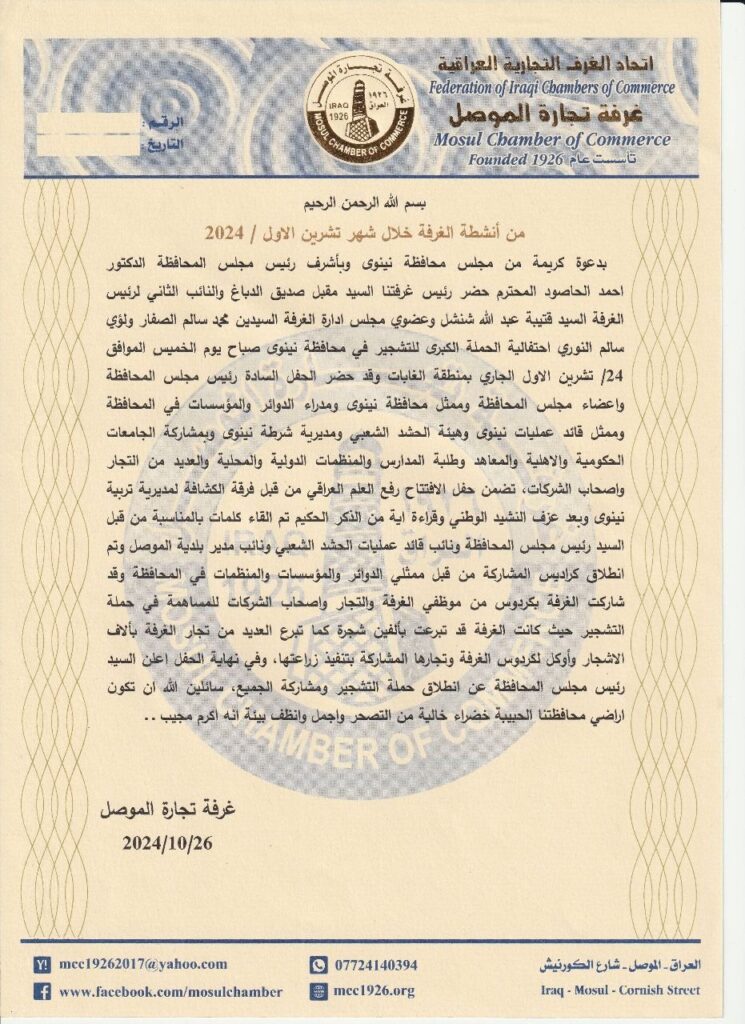 اتحاد الغرف التجارية العراقية
Federation of Iraqi Chambers of Commerce
غرفة تجارة الموصل
Mosul Chamber of Commerce
Founded 1926 تأسست عام
غرفة تجارة الموصل
IRAQ ١٩٢٦
1926 العراق
MOSUL CHAMBER OF COMMERCE
الرقم :
التاريخ :
بسم الله الرحمن الرحيم
من أنشطة الغرفة خلال شهر تشرين الاول / 2024
بدعوة كريمة من مجلس محافظة نينوى وبأشرف رئيس مجلس المحافظة الدكتور
احمد الحاصود المحترم حضر رئيس غرفتنا السيد مقبل صديق الدباغ والنائب الثاني لرئيس
الغرفة السيد قتيبة عبد الله شنشل وعضوي مجلس ادارة الغرفة السيدين محمد سالم الصفار ولؤي
سالم النوري احتفالية الحملة الكبرى للتشجير في محافظة نينوى صباح يوم الخميس الموافق
24/ تشرين الاول الجاري بمنطقة الغابات وقد حضر الحفل السادة رئيس مجلس المحافظة
واعضاء مجلس المحافظة وممثل محافظة نينوى ومدراء الدوائر والمؤسسات في المحافظة
وممثل قائد عمليات نينوى وهيئة الحشد الشعبي ومديرية شرطة نينوى وبمشاركة الجامعات
الحكومية والاهلية والمعاهد وطلبة المدارس والمنظمات الدولية والمحلية والعديد من التجار
واصحاب الشركات، تضمن حفل الافتتاح رفع العلم العراقي من قبل فرقة الكشافة لمديرية تربية
نينوى وبعد عزف النشيد الوطني وقراءة اية من الذكر الحكيم تم القاء كلمات بالمناسبة من قبل
السيد رئيس مجلس المحافظة ونائب قائد عمليات الحشد الشعبي ونائب مدير بلدية الموصل وتم
انطلاق كراديس المشاركة من قبل ممثلي الدوائر والمؤسسات والمنظمات في المحافظة وقد
شاركت الغرفة بكردوس من موظفي الغرفة والتجار واصحاب الشركات للمساهمة في حملة
التشجير حيث كانت الغرفة قد تبرعت بألفين شجرة كما تبرع العديد من تجار الغرفة بألاف
الاشجار وأوكل لكردوس الغرفة وتجارها المشاركة بتنفيذ زراعتها، وفي نهاية الحفل اعلن السيد
رئيس مجلس المحافظة عن انطلاق حملة التشجير ومشاركة الجميع، سائلين الله ان تكون
اراضي محافظتنا الحبيبة خضراء خالية من التصحر واجمل وانظف بيئة انه اكرم مجيب ..
غرفة تجارة الموصل
2024/10/26
mcc19262017@yahoo.com
07724140394
العراق - الموصل - شارع الكورنيش
www.facebook.com/mosulchamber
mcc1926.org
Iraq - Mosul - Cornish Street